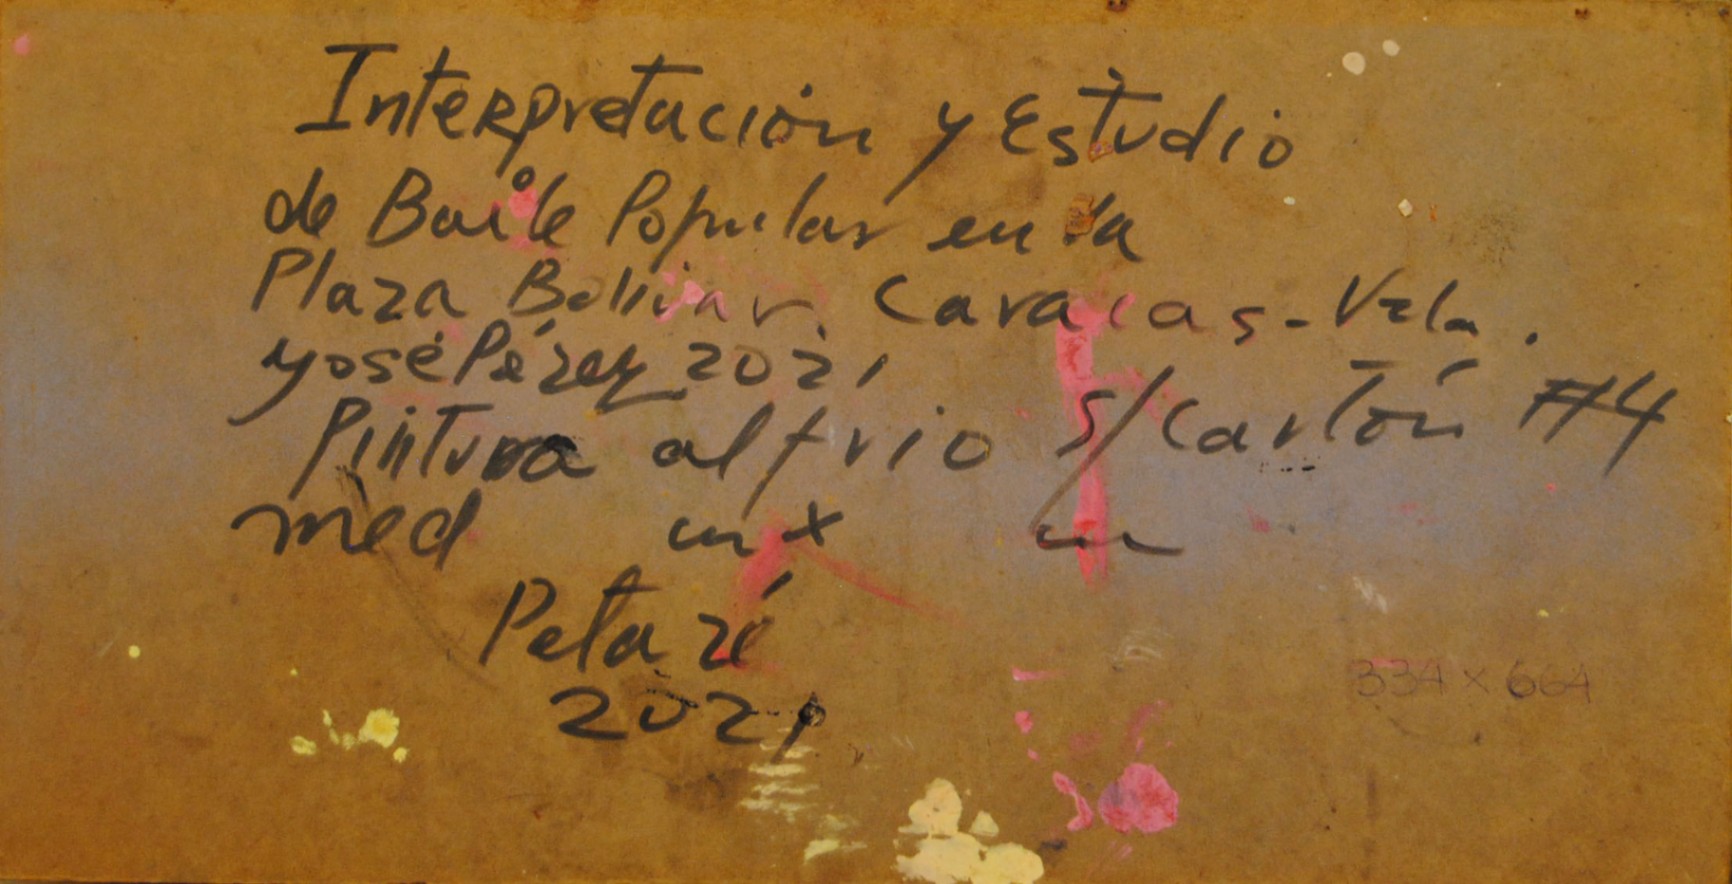 Interpretación y Estudio
de Baile Popular en la
Plaza Bolívar. Caracas-Vzla.
yosé Pérez 2021
Pintura al frio s/Cartón #4
med cm x cm
Petazé
2021
334 x 664